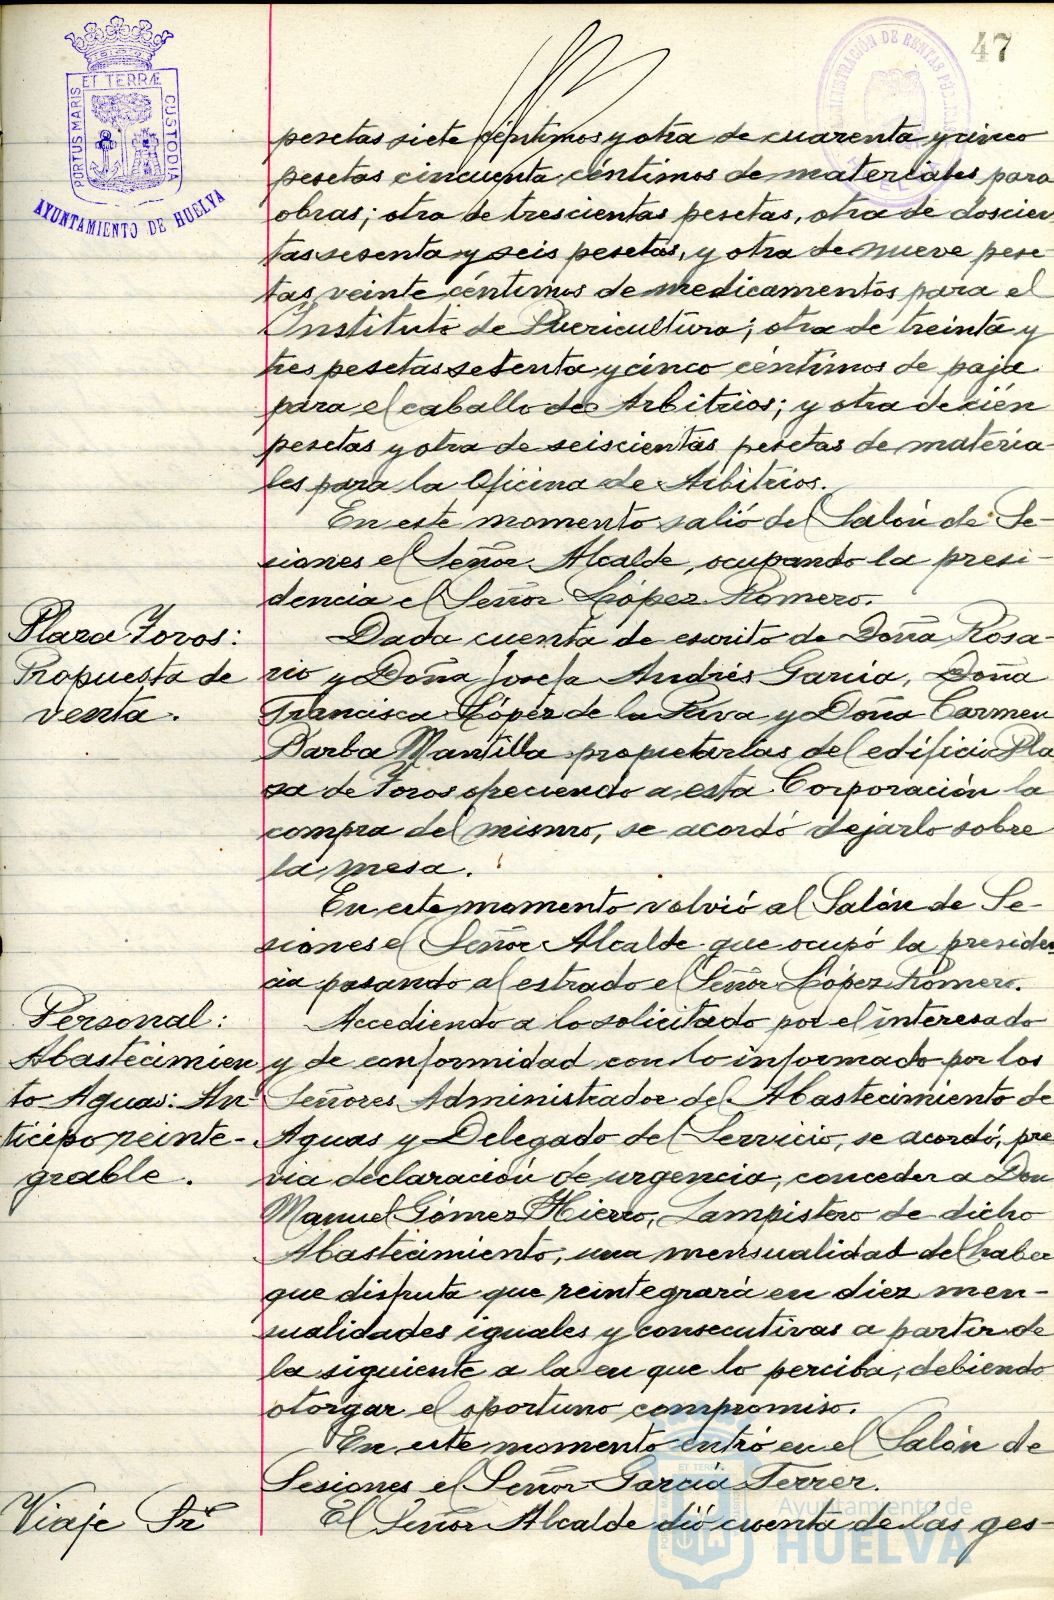 47
PORTUS MARIS ET TERRÆ CUSTODIA
AYUNTAMIENTO DE HUELVA
ADMINISTRACIÓN DE RENTAS PÚBLICAS
pesetas siete céntimos y otra de cuarenta y cinco
pesetas cincuenta céntimos de materiales para
obras; otra de trescientas pesetas, otra de doscien
tas sesenta y seis pesetas, y otra de nueve pese-
tas veinte céntimos de medicamentos para el
Instituto de Puericultura; otra de treinta y
tres pesetas setenta y cinco céntimos de paja
para el caballo de Arbitrios; y otra de cién
pesetas y otra de seiscientas pesetas de materia-
les para la Oficina de Arbitrios.
En este momento salió del Salón de Se-
siones el Señor Alcalde, ocupando la presi-
dencia el Señor López Romero.
Plaza Toros:
Propuesta de
venta.
Dada cuenta de escrito de Doña Rosa-
rio y Doña Josefa Andrés Garcia, Doña
Francisca López de la Riva y Doña Carmen
Barba Mantilla propietarias del edificio Pla
za de Toros ofreciendo a esta Corporación la
compra del mismo, se acordó dejarlo sobre
la mesa.
En este momento volvió al Salón de Se-
siones el Señor Alcalde que ocupó la presiden
cia pasando al estrado el Señor López Romero.
Personal:
Abastecimien
to Aguas: An
ticipo reinte-
grable.
Accediendo a lo solicitado por el interesado
y de conformidad con lo informado por los
Señores Administrador del Abastecimiento de
Aguas y Delegado del Servicio, se acordó, pre
via declaración de urgencia, conceder a Don
Manuel Gómez Hierro, Lampistero de dicho
Abastecimiento, una mensualidad del haber
que disfruta que reintegrará en diez men-
sualidades iguales y consecutivas a partir de
la siguiente a la en que lo perciba, debiendo
otorgar el oportuno compromiso.
En este momento entró en el Salón de
Sesiones el Señor García Ferrer.
Viaje Sr
El Señor Alcalde dió cuenta de las ges-
Ayuntamiento de
HUELVA